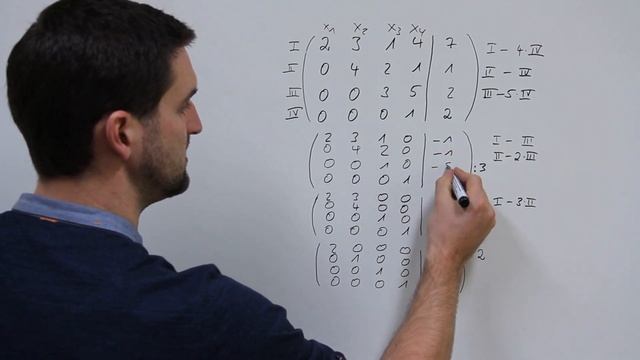 x1 x2 x3 x4
I 2 3 1 4 | 7 I - 4·IV
II 0 4 2 1 | 1 II - IV
III 0 0 3 5 | 2 III - 5·IV
IV 0 0 0 1 | 2
2 3 1 0 | -1 I - III
0 4 2 0 | -1 II - 2·III
0 0 1 0 | - :3
0 0 0 1 |
2 3 0 0 |
0 4 0 0 | I - 3·II
0 0 1 0 |
0 0 0 1 |
2 0 0 0 | 2
0 1 0 0 |
0 0 1 0 |
0 0 0 1 |